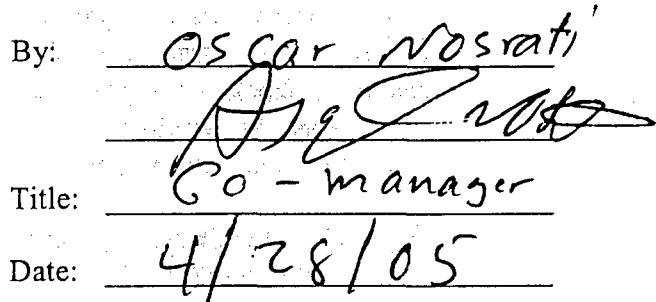 By: Oscar Nosrati
Title: Co-manager
Date: 4/28/05